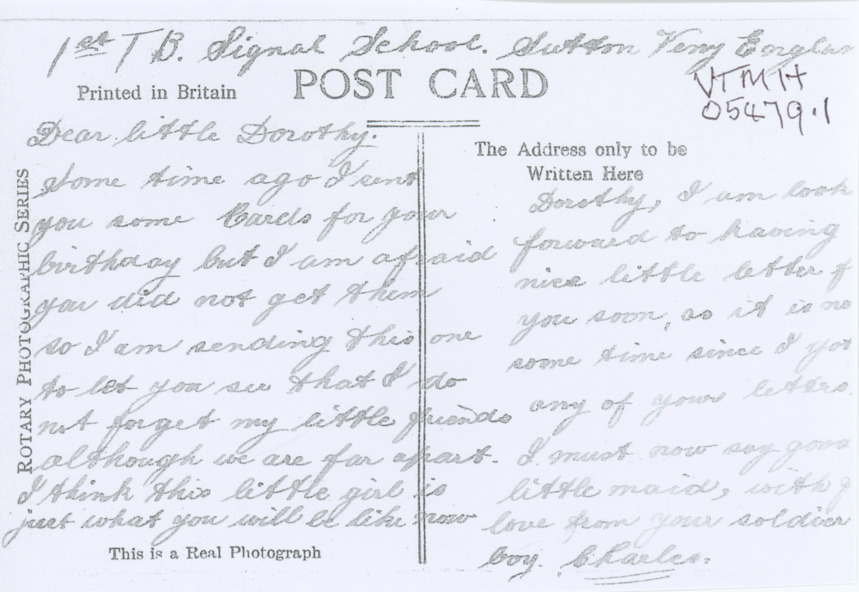 1st T B. Signal School. Sutton Veny Englan
VTMH
05479.1
Printed in Britain
POST CARD
ROTARY PHOTOGRAPHIC SERIES
Dear little Dorothy.
Some time ago I sent
you some Cards for your
birthday but I am afraid
you did not get them
so I am sending this one
to let you see that I do
not forget my little friends
although we are far apart.
I think this little girl is
just what you will be like now
This is a Real Photograph
The Address only to be
Written Here
Dorothy, I am look
forward to having
nice little letter f
you soon, as it is no
some time since I got
any of your letters.
I must now say good
little maid, with
love from your soldier
boy. Charles.